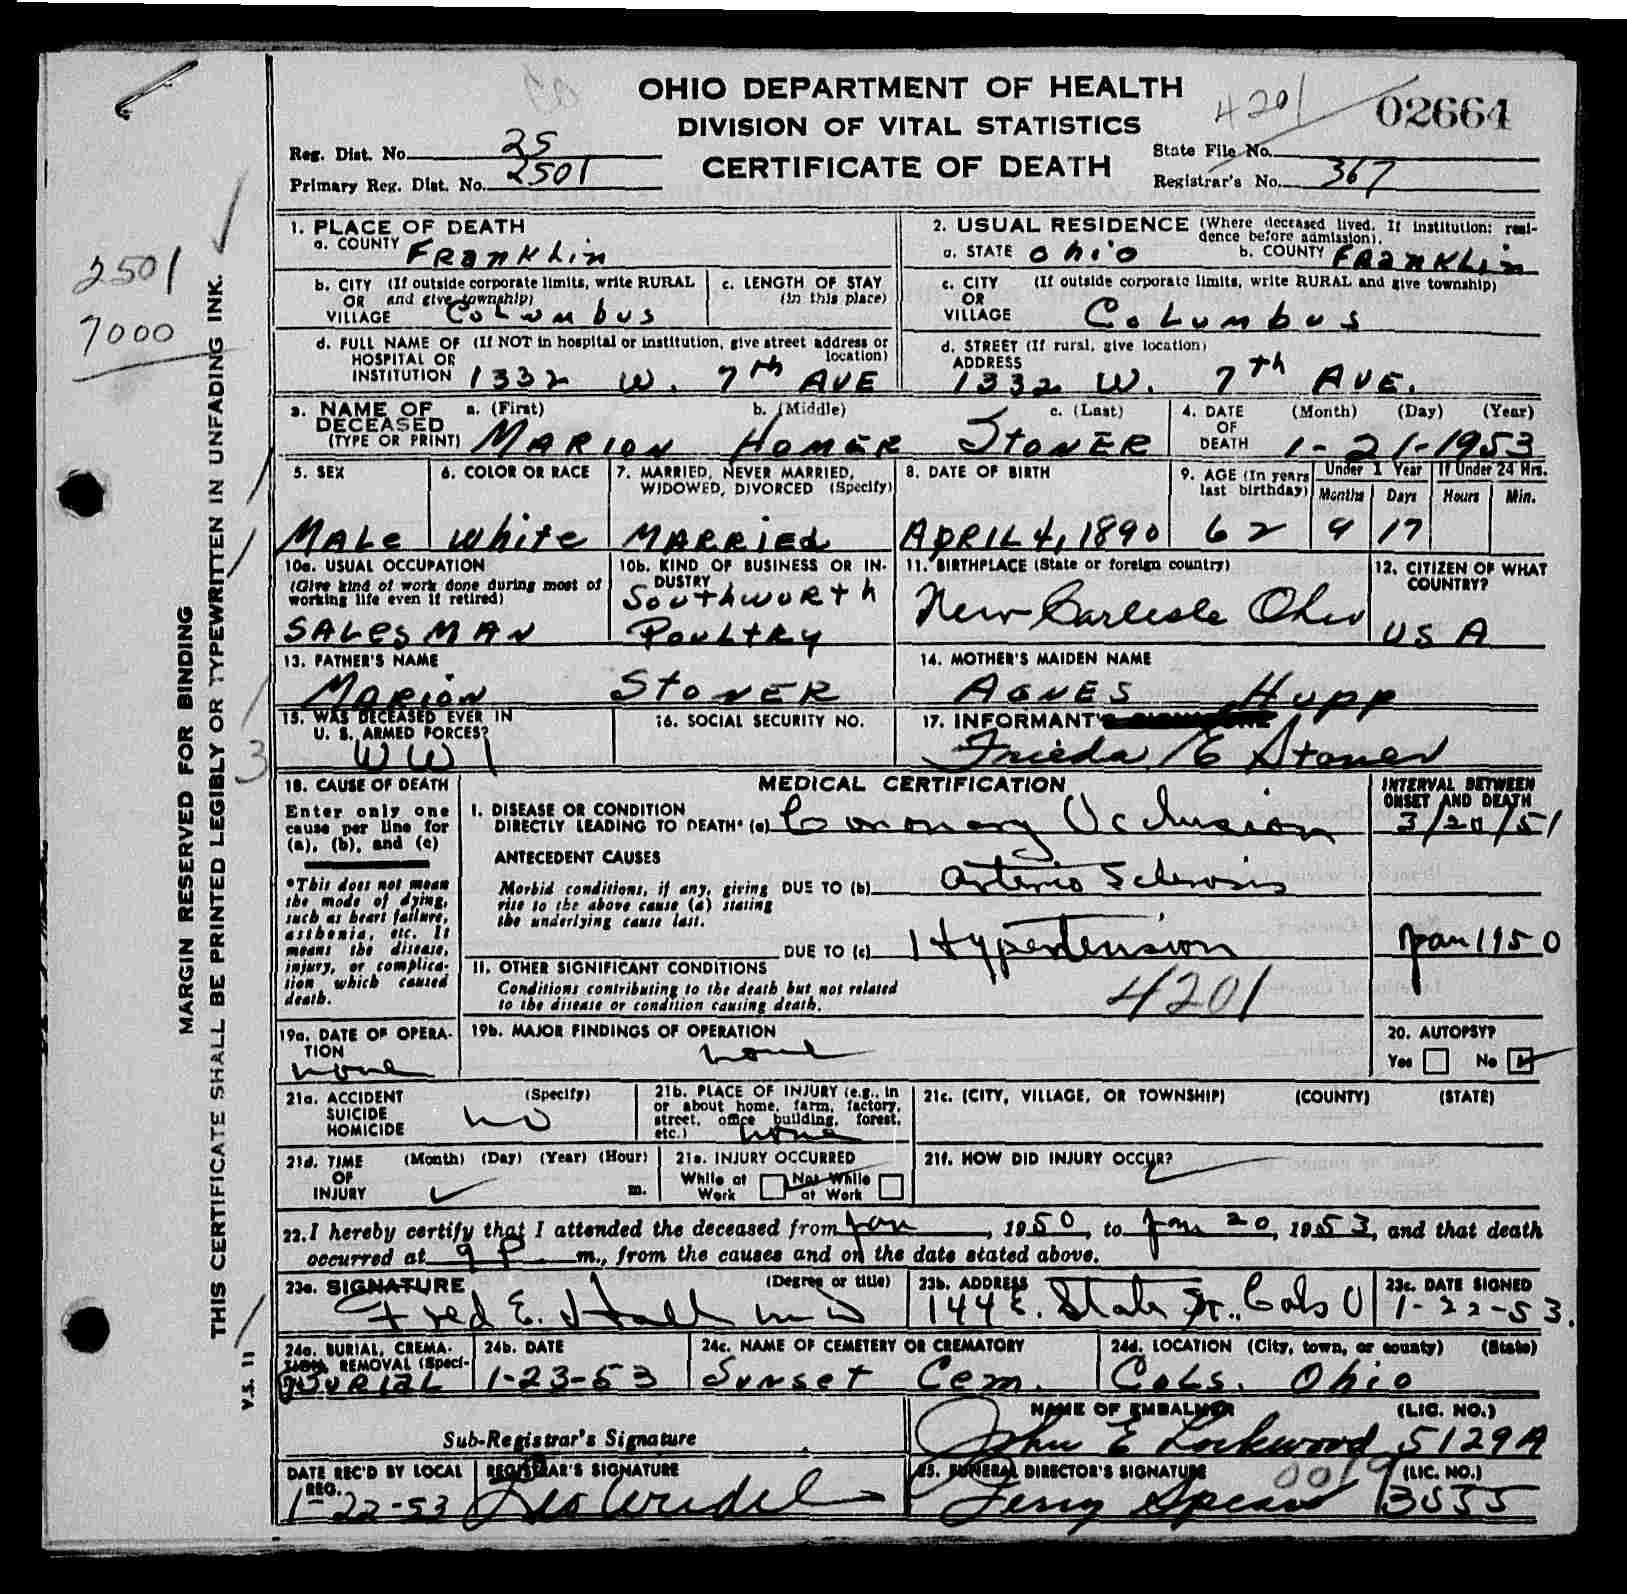 OHIO DEPARTMENT OF HEALTH
DIVISION OF VITAL STATISTICS
CERTIFICATE OF DEATH
4201
02664
Reg. Dist. No. 25
Primary Reg. Dist. No. 2501
State File No.
Registrar's No. 367
2501
7000
MARGIN RESERVED FOR BINDING
THIS CERTIFICATE SHALL BE PRINTED LEGIBLY OR TYPEWRITTEN IN UNFADING INK.
3
V.S. 11
1. PLACE OF DEATH
a. COUNTY Franklin
b. CITY (If outside corporate limits, write RURAL
OR and give township)
VILLAGE Columbus
c. LENGTH OF STAY
(in this place)
d. FULL NAME OF (If NOT in hospital or institution, give street address or
HOSPITAL OR location)
INSTITUTION 1332 W. 7th AVE
2. USUAL RESIDENCE (Where deceased lived. If institution: resi-
dence before admission).
a. STATE Ohio b. COUNTY Franklin
c. CITY (If outside corporate limits, write RURAL and give township)
OR
VILLAGE Columbus
d. STREET (If rural, give location)
ADDRESS 1332 W. 7th AVE.
3. NAME OF
DECEASED
(TYPE OR PRINT)
a. (First) b. (Middle) c. (Last)
MARION HOMER STONER
4. DATE (Month) (Day) (Year)
OF
DEATH 1-21-1953
5. SEX
MALE
6. COLOR OR RACE
White
7. MARRIED, NEVER MARRIED,
WIDOWED, DIVORCED (Specify)
MARRIED
8. DATE OF BIRTH
APRIL 4, 1890
9. AGE (In years
last birthday)
62
Under 1 Year
Months Days
9 17
If Under 24 Hrs.
Hours Min.
10a. USUAL OCCUPATION
(Give kind of work done during most of
working life even if retired)
SALESMAN
10b. KIND OF BUSINESS OR IN-
DUSTRY
Southworth
Poultry
11. BIRTHPLACE (State or foreign country)
New Carlisle Ohio
12. CITIZEN OF WHAT
COUNTRY?
USA
13. FATHER'S NAME
Marion Stoner
14. MOTHER'S MAIDEN NAME
Agnes Hupp
15. WAS DECEASED EVER IN
U. S. ARMED FORCES?
WW1
16. SOCIAL SECURITY NO.
17. INFORMANT'S
Frieda E Stoner
18. CAUSE OF DEATH
Enter only one
cause per line for
(a), (b), and (c)
*This does not mean
the mode of dying,
such as heart failure,
asthenia, etc. It
means the disease,
injury, or complica-
tion which caused
death.
MEDICAL CERTIFICATION
I. DISEASE OR CONDITION
DIRECTLY LEADING TO DEATH* (a) Coronary Occlusion
ANTECEDENT CAUSES
Morbid conditions, if any, giving
rise to the above cause (a) stating
the underlying cause last.
DUE TO (b) Arterio Sclerosis
DUE TO (c) Hypertension
INTERVAL BETWEEN
ONSET AND DEATH
3/20/51
Jan 1950
II. OTHER SIGNIFICANT CONDITIONS
Conditions contributing to the death but not related
to the disease or condition causing death.
4201
19a. DATE OF OPERA-
TION
none
19b. MAJOR FINDINGS OF OPERATION
none
20. AUTOPSY?
Yes No
21a. ACCIDENT (Specify)
SUICIDE
HOMICIDE
no
21b. PLACE OF INJURY (e.g., in
or about home, farm, factory,
street, office building, forest,
etc.) none
21c. (CITY, VILLAGE, OR TOWNSHIP) (COUNTY) (STATE)
21d. TIME (Month) (Day) (Year) (Hour)
OF
INJURY m.
21e. INJURY OCCURRED
While at Not While
Work at Work
21f. HOW DID INJURY OCCUR?
22. I hereby certify that I attended the deceased from Jan, 1950, to Jan 20, 1953, and that death
occurred at 9 P m., from the causes and on the date stated above.
23a. SIGNATURE (Degree or title)
Fred E. Hall MD
23b. ADDRESS
144 E. State St., Cols O
23c. DATE SIGNED
1-22-53.
24a. BURIAL, CREMA-
TION, REMOVAL (Speci-
Burial
24b. DATE
1-23-53
24c. NAME OF CEMETERY OR CREMATORY
Sunset Cem.
24d. LOCATION (City, town, or county) (State)
Cols. Ohio
Sub-Registrar's Signature
NAME OF EMBALMER (LIC. NO.)
John E Lockwood 5129A
DATE REC'D BY LOCAL
REG.
1-22-53
REGISTRAR'S SIGNATURE
25. FUNERAL DIRECTOR'S SIGNATURE (LIC. NO.)
Jerry Spears 3535